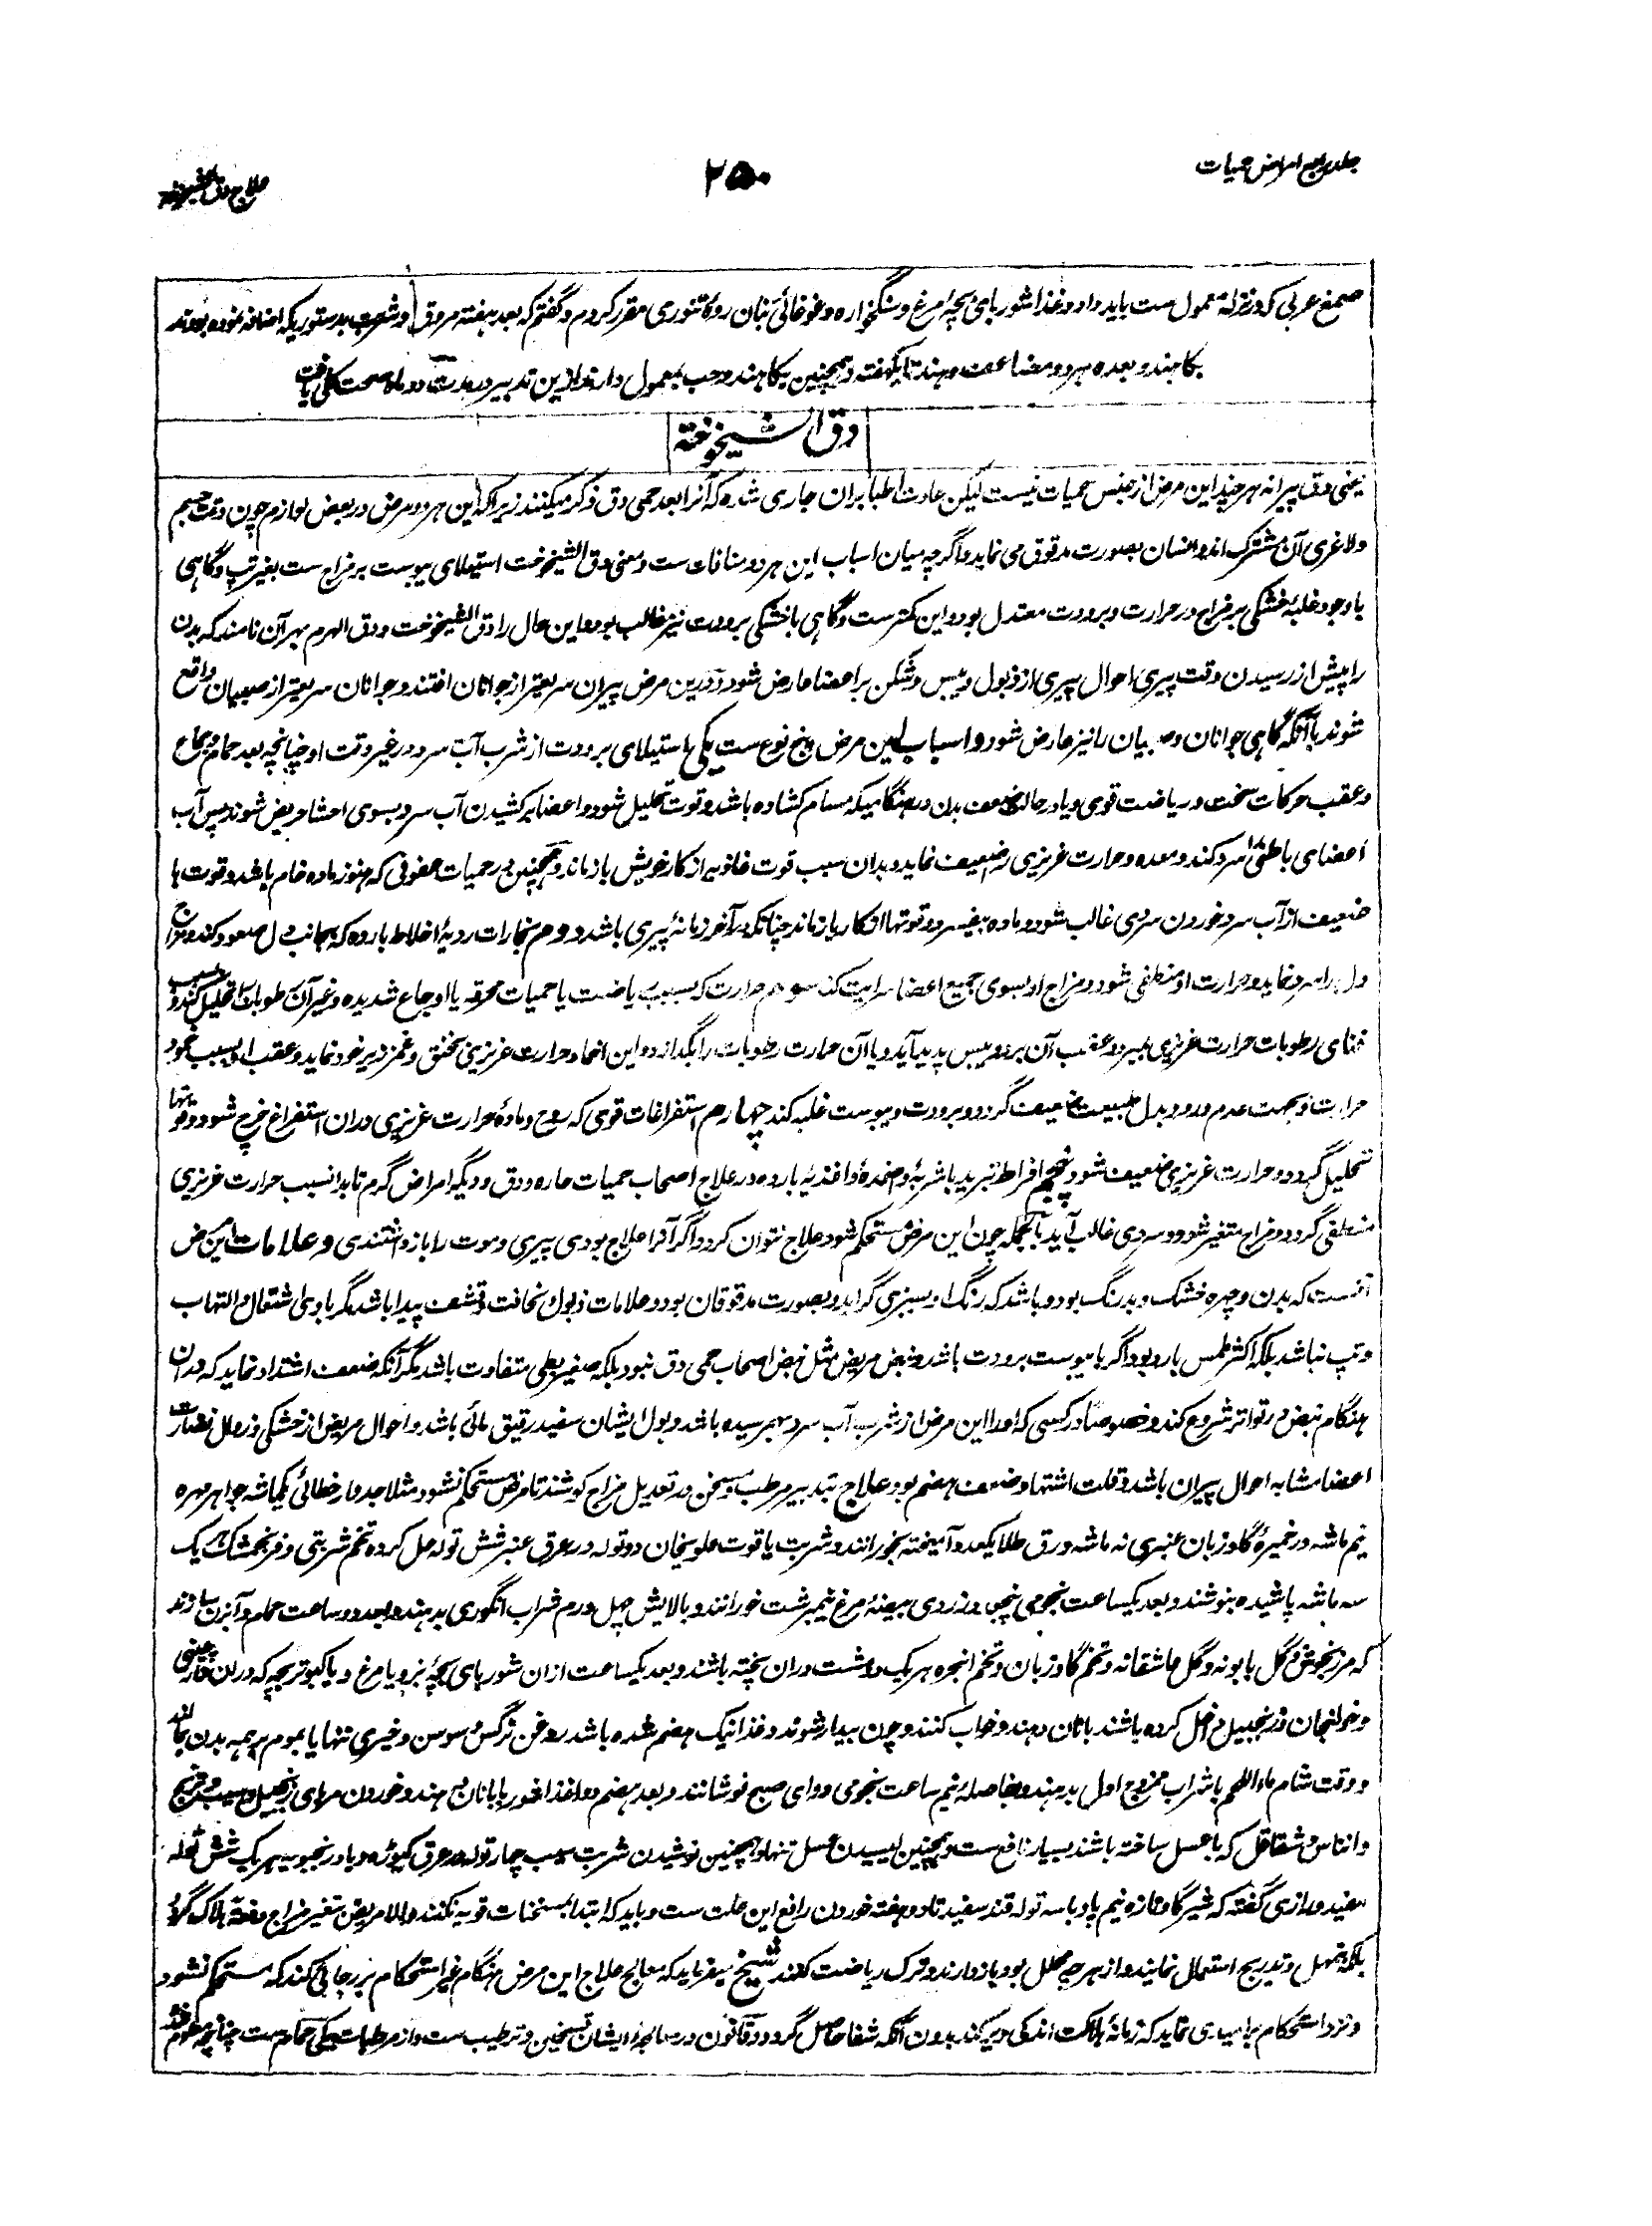 جلد رابع امراض حمیات
۲۵۰
علاج دق الشیخوخه
صمغ عربی که در نزله معمول ست باید داد و غذا شوربای بچهٔ مرغ و سنگخواره و غوغائی بنان روهٔ تنوری مقرر کردم و گفتم که بعد هفته مروق و شربت بدستوریکه اضافه نموده بودند
بکاهند و بعده هر دو مضاعف دهند تا یکهفته و همچنین بکاهند و حب بمعمول دارند ازین تدبیر در مدت دو ماه صحت کلی یافت
دق الشیخوخة
یعنی دق پیرانه هر چند این مرض از جنس حمیات نیست لیکن عادت اطبا بران جاری شده که آنرا بعد حمی دق ذکر میکنند زیراکه این هر دو مرض در بعض لوازم چون دقت جسم
ولاغری آن مشترک اند و انسان بصورت مدقوق می نماید و اگرچه میان اسباب این هر دو منافات ست و معنی دق الشیخوخت استیلای یبوست بر مزاج ست بغیر تپ و گاهی
باوجود غلبهٔ خشکی بر مزاج در حرارت و برودت معتدل بود و این کمتر ست و گاهی با خشکی برودت نیز غالب بود و این حال را دق الشیخوخت و دق الهرم بهر آن نامند که بدن
را پیش از رسیدن وقت پیری احوال پیری از ذبول و یبس و شکن بر اعضا عارض شود و درین مرض پیران سریعتر از جوانان افتند و جوانان سریعتر از صبیان واقع
شوند باآنکه گاهی جوانان و صبیان را نیز عارض شود و اسباب این مرض پنج نوع ست یکی استیلای برودت از شرب آب سرد در غیر وقت او چنانچه بعد حمام و جماع
و عقب حرکات سخت و ریاضت قوی و یا در حالت ضعف بدن در هنگامیکه مسام کشاده باشد و قوت تحلیل شود و اعضا بر کشیدن آب سرد بسوی احشا حریص شوند پس آب
اعضای باطنی را سرد کند و معده و حرارت غریزی را ضعیف نماید و بدان سبب قوت غاذیه از کار خویش باز ماند و همچنین در حمیات عفونی که هنوز ماده خام باشد و قوت ها
ضعیف از آب سرد خوردن سردی غالب شود و ماده بفسرد و قوتها از کار باز ماند چنانکه در آخر زمانهٔ پیری باشد دوم بخارات ردیهٔ اخلاط بارده که بجانب دل صعود کند و مزاج
دل را سرد نماید و حرارت او منطفی شود و مزاج او بسوی جمیع اعضا سرایت کند سوم حرارت که بسبب ریاضت یا حمیات محرقه یا اوجاع شدیده و غیر آن رطوبات را تحلیل کند و بسبب
فنای رطوبات حرارت غریزی بمیرد و عقب آن برد و یبس پدید آید و یا آن حرارت رطوبات را بگدازد و این انحما و حرارت غریزی مختنق و غمر در خود نماید و عقب او بسبب خمود
حرارت و بجهت عدم ورود بدل طبیعت ضعیف گردد و برودت و یبوست غلبه کند چهارم استفراغات قوی که روح و مادهٔ حرارت غریزی دران استفراغ خرج شود و قوتها
تحلیل گردد و حرارت غریزی ضعیف شود پنجم افراط تبرید باشربه و اضمده و اغذیه بارده در علاج اصحاب حمیات حاره و دق و دیگر امراض گرم تا بدانسبب حرارت غریزی
منطفی گردد و مزاج متغیر شود و سردی غالب آید بالجمله چون این مرض مستحکم شود علاج نتوان کرد و اگر آنرا علاج بودی پیری و موت را باز داشتندی و علامات این مرض
آنست که بدن و چهره خشک و بدرنگ بود و باشد که رنگ او بسبزی گراید و بصورت مدقوقان بود و علامات ذبول و نحافت و قشف پیدا باشد مگر با وی اشتعال و التهاب
و تپ نباشد بلکه اکثر لمس بارد بود اگر با یبوست برودت باشد و نبض مریض مثل نبض اصحاب حمی دق نبود بلکه صغیر بطی متفاوت باشد مگر آنکه ضعف اشتداد نماید که دران
هنگام نبض در تواتر شروع کند و خصوصا در کسی که او را این مرض از شرب آب سرد بهمرسیده باشد و بول ایشان سفید رقیق مائی باشد و احوال مریض از خشکی و زوال نضارت
اعضا مشابه احوال پیران باشد و قلت اشتها و ضعف هضم بود علاج بتدبیر مرطب و مسخن در تعدیل مزاج کوشند تا مرض مستحکم نشود مثلا جدوار خطائی یکماشه جواهر مهره
نیم ماشه در خمیرهٔ گاوزبان عنبری نه ماشه ورق طلا یکعدد آمیخته بخورانند و شربت یاقوت حلو بیخان دو توله در عرق عنبر شش توله حل کرده تخم شربتی و فرنجمشک هر یک
سه ماشه پاشیده بنوشند و بعد یکساعت نجومی پنج زردی بیضهٔ مرغ نیمبرشت خورانند و بالایش چهل درم شراب انگوری بدهند و بعد دو ساعت حمام و آبزن سازند
که مرزنجوش و گل بابونه و گل عاشقانه و تخم گاوزبان و تخم انجره هر یک دو مشت دران پخته باشند و بعد یکساعت ازان شوربای بچهٔ بز و یا مرغ و یا کبوتر بچه که دران دارچینی
و خولنجان و زنجبیل داخل کرده باشند با نان دهند و خواب کنند و چون بیدار شوند و غذا نیک هضم شده باشد روغن نرگس و سوسن و خیری تنها یا بموم بر همه بدن بمالند
و وقت شام ماءاللحم باشراب ممزوج اول بدهند و بفاصلهٔ نیم ساعت نجومی دوای صبح نوشانند و بعد هضم دوا غذا مذکور با نان دهند و خوردن مربای زنجبیل و سیب و ترنج
و انناس و شقاقل که با عسل ساخته باشند بسیار نافع ست و همچنین لیسیدن عسل تنها و همچنین نوشیدن شربت سیب چهار توله در عرق کیوڑه و بادرنجبویه هر یک شش توله
مفید و رازی گفته که شیر گاو تازه نیم پاو با سه توله قند سفید تا دو هفته خوردن رافع این علت ست و باید که ابتدا بمسخنات قویه نکنند والا مریض متغیر مزاج دفعةً هلاک گردد
بلکه بتمهل و تدریج استعمال نمایند و از هر چه محلل بود باز دارند و ترک ریاضت کنند شیخ میفرماید که معالج علاج این مرض هنگام غیر استحکام بر رجائی کند که مستحکم نشود
و نزد استحکام بر امیدی نماید که زمانهٔ هلاکت اندکی دیر کند بدون آنکه شفا حاصل گردد و قانون در معالجه ایشان تسخین و ترطیب ست و از مرطبات یکی حمام ست چنانچه معلوم شد